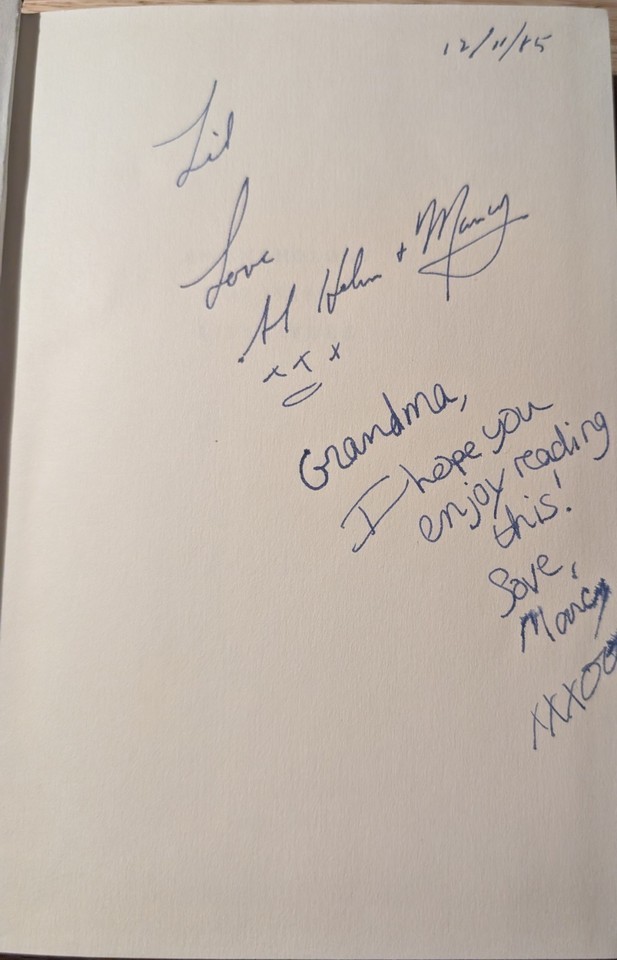 12/11/85
Lil
Love
Al Helen + Marcy
x x x
Grandma,
I hope you
enjoy reading
this!
Love,
Marcy
XXXOO